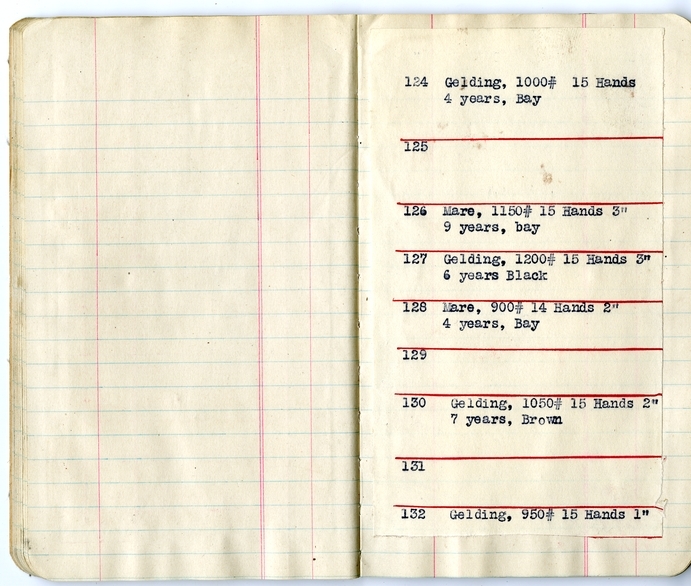 124 Gelding, 1000# 15 Hands
4 years, Bay
125
126 Mare, 1150# 15 Hands 3"
9 years, bay
127 Gelding, 1200# 15 Hands 3"
6 years Black
128 Mare, 900# 14 Hands 2"
4 years, Bay
129
130 Gelding, 1050# 15 Hands 2"
7 years, Brown
131
132 Gelding, 950# 15 Hands 1"